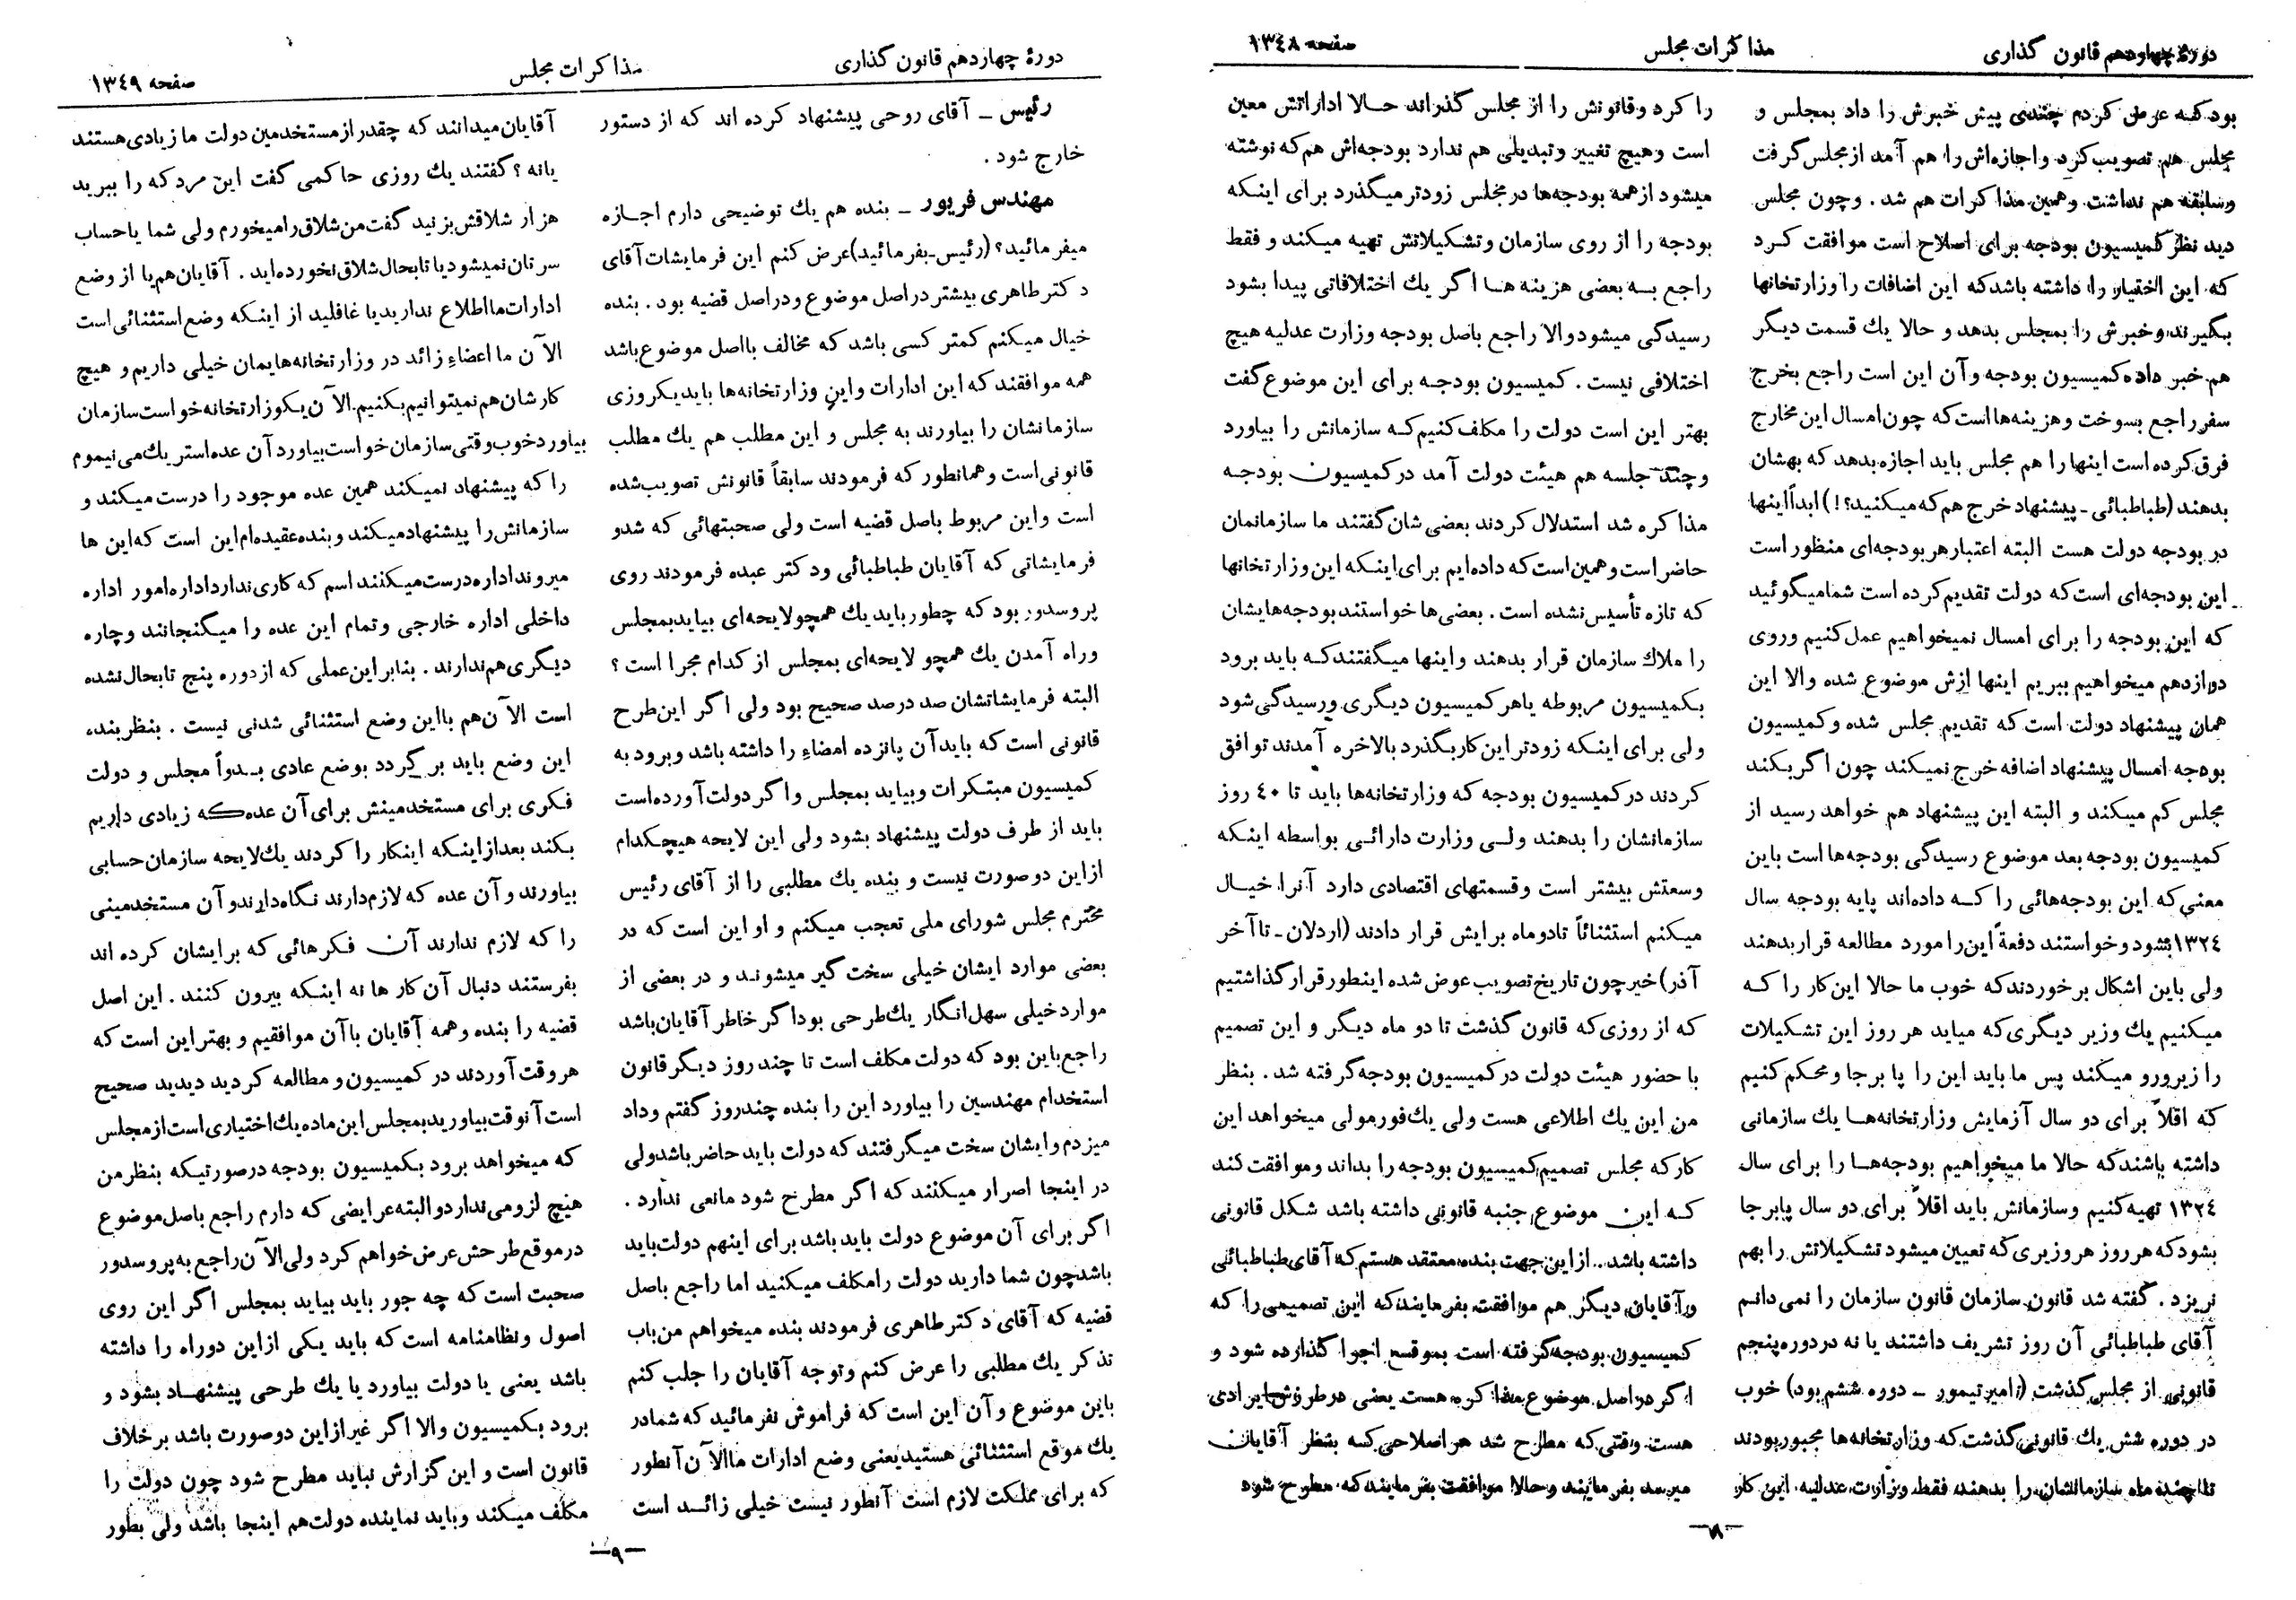 دورهٔ چهاردهم قانون گذاری
مذاکرات مجلس
صفحه ۱۳۴۸
بود که عرض کردم چندی پیش خبرش را داد بمجلس و
مجلس هم تصویب کرد و اجازه‌اش را هم آمد از مجلس گرفت
وسابقه هم نداشت وهمین مذاکرات هم شد . وچون مجلس
دید نظر کمیسیون بودجه برای اصلاح است موافقت کرد
که این اختیار را داشته باشد که این اضافات را وزارتخانها
بگیرند وخبرش را بمجلس بدهد و حالا یك قسمت دیگر
هم خبر داده کمیسیون بودجه وآن این است راجع بخرج
سفر راجع بسوخت وهزینه‌ها است که چون امسال این مخارج
فرق کرده است اینها را هم مجلس باید اجازه بدهد که بهشان
بدهند (طباطبائی ـ پیشنهاد خرج هم که میکنید؟!) ابداً اینها
در بودجه دولت هست البته اعتبار هر بودجه‌ای منظور است
این بودجه‌ای است که دولت تقدیم کرده است شما میگوئید
که این بودجه را برای امسال نمیخواهیم عمل کنیم وروی
دوازدهم میخواهیم ببریم اینها ازش موضوع شده والا این
همان پیشنهاد دولت است که تقدیم مجلس شده وکمیسیون
بودجه امسال پیشنهاد اضافه خرج نمیکند چون اگر بکند
مجلس کم میکند و البته این پیشنهاد هم خواهد رسید از
کمیسیون بودجه بعد موضوع رسیدگی بودجه‌ها است باین
معنی که این بودجه‌هائی را کـه داده‌اند پایه بودجه سال
۱۳۲٤ بشود وخواستند دفعةً این را مورد مطالعه قرار بدهند
ولی باین اشکال بر خوردند که خوب ما حالا این کار را کـه
میکنیم یك وزیر دیگری که میاید هر روز این تشکیلات
را زیرورو میکند پس ما باید این را پا برجا ومحکم کنیم
که اقلاً برای دو سال آزمایش وزارتخانه‌هـا یك سازمانی
داشته باشند که حالا ما میخواهیم بودجه‌هـا را برای سال
۱۳۲٤ تهیه کنیم وسازمانش باید اقلاً برای دو سال پابرجا
بشود که هر روز هر وزیری که تعیین میشود تشکیلاتش را بهم
نریزد . گفته شد قانون سازمان قانون سازمان را نمی دانم
آقای طباطبائی آن روز تشریف داشتند یا نه در دوره پنجم
قانونی از مجلس گذشت (امیر تیمور ـ دوره ششم بود) خوب
در دوره شش یك قانونی گذشت که وزارتخانه‌ها مجبور بودند
تا چند ماه سازمانشان را بدهند فقط وزارت عدلیه این کار
را کرد وقانونش را از مجلس گذراند حـالا اداراتش معین
است وهیچ تغییر وتبدیلی هم ندارد بودجه‌اش هم که نوشته
میشود از همه بودجه‌ها در مجلس زودتر میگذرد برای اینکه
بودجه را از روی سازمان وتشکیلاتش تهیه میکند و فقط
راجع بـه بعضی هزینه هـا اگر یك اختلافاتی پیدا بشود
رسیدگی میشود والا راجع باصل بودجه وزارت عدلیه هیچ
اختلافی نیست . کمیسیون بودجـه برای این موضوع گفت
بهتر این است دولت را مکلف کنیم کـه سازمانش را بیاورد
وچند جلسه هم هیئت دولت آمد در کمیسیون بودجـه
مذاکره شد استدلال کردند بعضی شان گفتند ما سازمانمان
حاضر است وهمین است که داده‌ایم برای اینکه این وزارتخانها
که تازه تأسیس نشده است . بعضی‌ها خواستند بودجه‌هایشان
را ملاك سازمان قرار بدهند واینها میگفتند کـه باید برود
بکمیسیون مربوطه یا هر کمیسیون دیگری ورسیدگی شود
ولی برای اینکه زودتر این کار بگذرد بالاخره آمدند توافق
کردند در کمیسیون بودجه که وزارتخانه‌ها باید تا ٤۰ روز
سازمانشان را بدهند ولـی وزارت دارائـی بواسطه اینکه
وسعتش بیشتر است وقسمتهای اقتصادی دارد آنرا خیـال
میکنم استثنائاً تا دو ماه برایش قرار دادند (اردلان ـ تا آخر
آذر) خیر چون تاریخ تصویب عوض شده اینطور قرار گذاشتیم
که از روزی که قانون گذشت تا دو ماه دیگر و این تصمیم
با حضور هیئت دولت در کمیسیون بودجه گرفته شد . بنظر
من این یك اطلاعی هست ولی یك فورمولی میخواهد این
کار که مجلس تصمیم کمیسیون بودجه را بداند وموافقت کند
کـه این موضوع جنبه قانونی داشته باشد شکل قانونی
داشته باشد . از این جهت بنده معتقد هستم که آقای طباطبائی
وآقایان دیگر هم موافقت بفرمایند که این تصمیمی را که
کمیسیون بودجه گرفته است بموقع اجرا گذارده شود و
اگر در اصل موضوع مذاکره هست یعنی در طرزش ایرادی
هست وقتی که مطرح شد هر اصلاحی که بنظر آقایان
میرسد بفرمایند وحالا موافقت بفرمایند که مطرح شود
ـ۸ـ
دورهٔ چهاردهم قانون گذاری
مذاکرات مجلس
صفحه ۱۳٤۹
رئیس ـ آقای روحی پیشنهاد کرده اند که از دستور
خارج شود .
مهندس فریور ـ بنده هم یك توضیحی دارم اجـازه
میفرمائید؟ (رئیس ـ بفرمائید) عرض کنم این فرمایشات آقای
دکتر طاهری بیشتر در اصل موضوع ودر اصل قضیه بود . بنده
خیال میکنم کمتر کسی باشد که مخالف با اصل موضوع باشد
همه موافقند که این ادارات واین وزارتخانه‌ها باید یکروزی
سازمانشان را بیاورند به مجلس و این مطلب هم یك مطلب
قانونی است وهمانطور که فرمودند سابقاً قانونش تصویب شده
است واین مربوط باصل قضیه است ولی صحبتهائی که شد و
فرمایشاتی که آقایان طباطبائی ودکتر عبده فرمودند روی
پروسدور بود که چطور باید یك همچو لایحه‌ای بیاید بمجلس
وراه آمدن یك همچو لایحه‌ای بمجلس از کدام مجرا است ؟
البته فرمایشاتشان صد درصد صحیح بود ولی اگر این طرح
قانونی است که باید آن پانزده امضاء را داشته باشد وبرود به
کمیسیون مبتکرات وبیاید بمجلس واگر دولت آورده است
باید از طرف دولت پیشنهاد بشود ولی این لایحه هیچکدام
از این دو صورت نیست و بنده یك مطلبی را از آقای رئیس
محترم مجلس شورای ملی تعجب میکنم و او این است که در
بعضی موارد ایشان خیلی سخت گیر میشونـد و در بعضی از
موارد خیلی سهل انگار یك طرحی بود اگر خاطر آقایان باشد
راجع باین بود که دولت مکلف است تا چند روز دیگر قانون
استخدام مهندسین را بیاورد این را بنده چند روز گفتم وداد
میزدم وایشان سخت میگرفتند که دولت باید حاضر باشد ولی
در اینجا اصرار میکنند که اگر مطرح شود مانعی ندارد .
اگر برای آن موضوع دولت باید باشد برای اینهم دولت باید
باشد چون شما دارید دولت را مکلف میکنید اما راجع باصل
قضیه که آقای دکتر طاهری فرمودند بنده میخواهم من باب
تذکر یك مطلبی را عرض کنم وتوجه آقایان را جلب کنم
باین موضوع وآن این است که فراموش نفرمائید که شما در
یك موقع استثنائی هستید یعنی وضع ادارات ما الآن آنطور
که برای مملکت لازم است آنطور نیست خیلی زائـد است
آقایان میدانند که چقدر از مستخدمین دولت ما زیادی هستند
یا نه ؟ گفتند یك روزی حاکمی گفت این مردکه را ببرید
هزار شلاقش بزنید گفت من شلاق را میخورم ولی شما یا حساب
سرتان نمیشود یا تا بحال شلاق نخورده‌اید . آقایان هم یا از وضع
ادارات ما اطلاع ندارید یا غافلید از اینکه وضع استثنائی است
الآن ما اعضاء زائد در وزارتخانه‌هایمان خیلی داریم و هیچ
کارشان هم نمیتوانیم بکنیم. الآن یکوزارتخانه خواست سازمان
بیاورد خوب وقتی سازمان خواست بیاورد آن عده استریك می نیموم
را که پیشنهاد نمیکند همین عده موجود را درست میکند و
سازمانش را پیشنهاد میکند وبنده عقیده‌ام این است که این ها
میروند اداره درست میکنند اسم که کاری ندارد اداره امور اداره
داخلی اداره خارجی وتمام این عده را میگنجانند وچاره
دیگری هم ندارند . بنابر این عملی که از دوره پنج تا بحال نشده
است الآن هم با این وضع استثنائی شدنی نیست . بنظر بنده
این وضع باید بر گردد بوضع عادی بـدواً مجلس و دولت
فکری برای مستخدمینش برای آن عده که زیادی داریم
بکند بعد از اینکه اینکار را کردند یك لایحه سازمان حسابی
بیاورند و آن عده که لازم دارند نگاه دارند و آن مستخدمینی
را که لازم ندارند آن فکرهائی که برایشان کرده اند
بفرستند دنبال آن کار ها نه اینکه بیرون کنند . این اصل
قضیه را بنده وهمه آقایان با آن موافقیم و بهتر این است که
هر وقت آوردند در کمیسیون و مطالعه کردید دیدید صحیح
است آنوقت بیاورید بمجلس این ماده یك اختیاری است از مجلس
که میخواهد برود بکمیسیون بودجه در صورتیکه بنظر من
هیچ لزومی ندارد و البته عرایضی که دارم راجع باصل موضوع
در موقع طرحش عرض خواهم کرد ولی الآن راجع به پروسدور
صحبت است که چه جور باید بیاید بمجلس اگر این روی
اصول ونظامنامه است که باید یکی از این دو راه را داشته
باشد یعنی یا دولت بیاورد یا یك طرحی پیشنهـاد بشود و
برود بکمیسیون والا اگر غیر از این دو صورت باشد بر خلاف
قانون است و این گزارش نباید مطرح شود چون دولت را
مکلف میکند وباید نماینده دولت هم اینجا باشد ولی بطور
ـ۹ـ